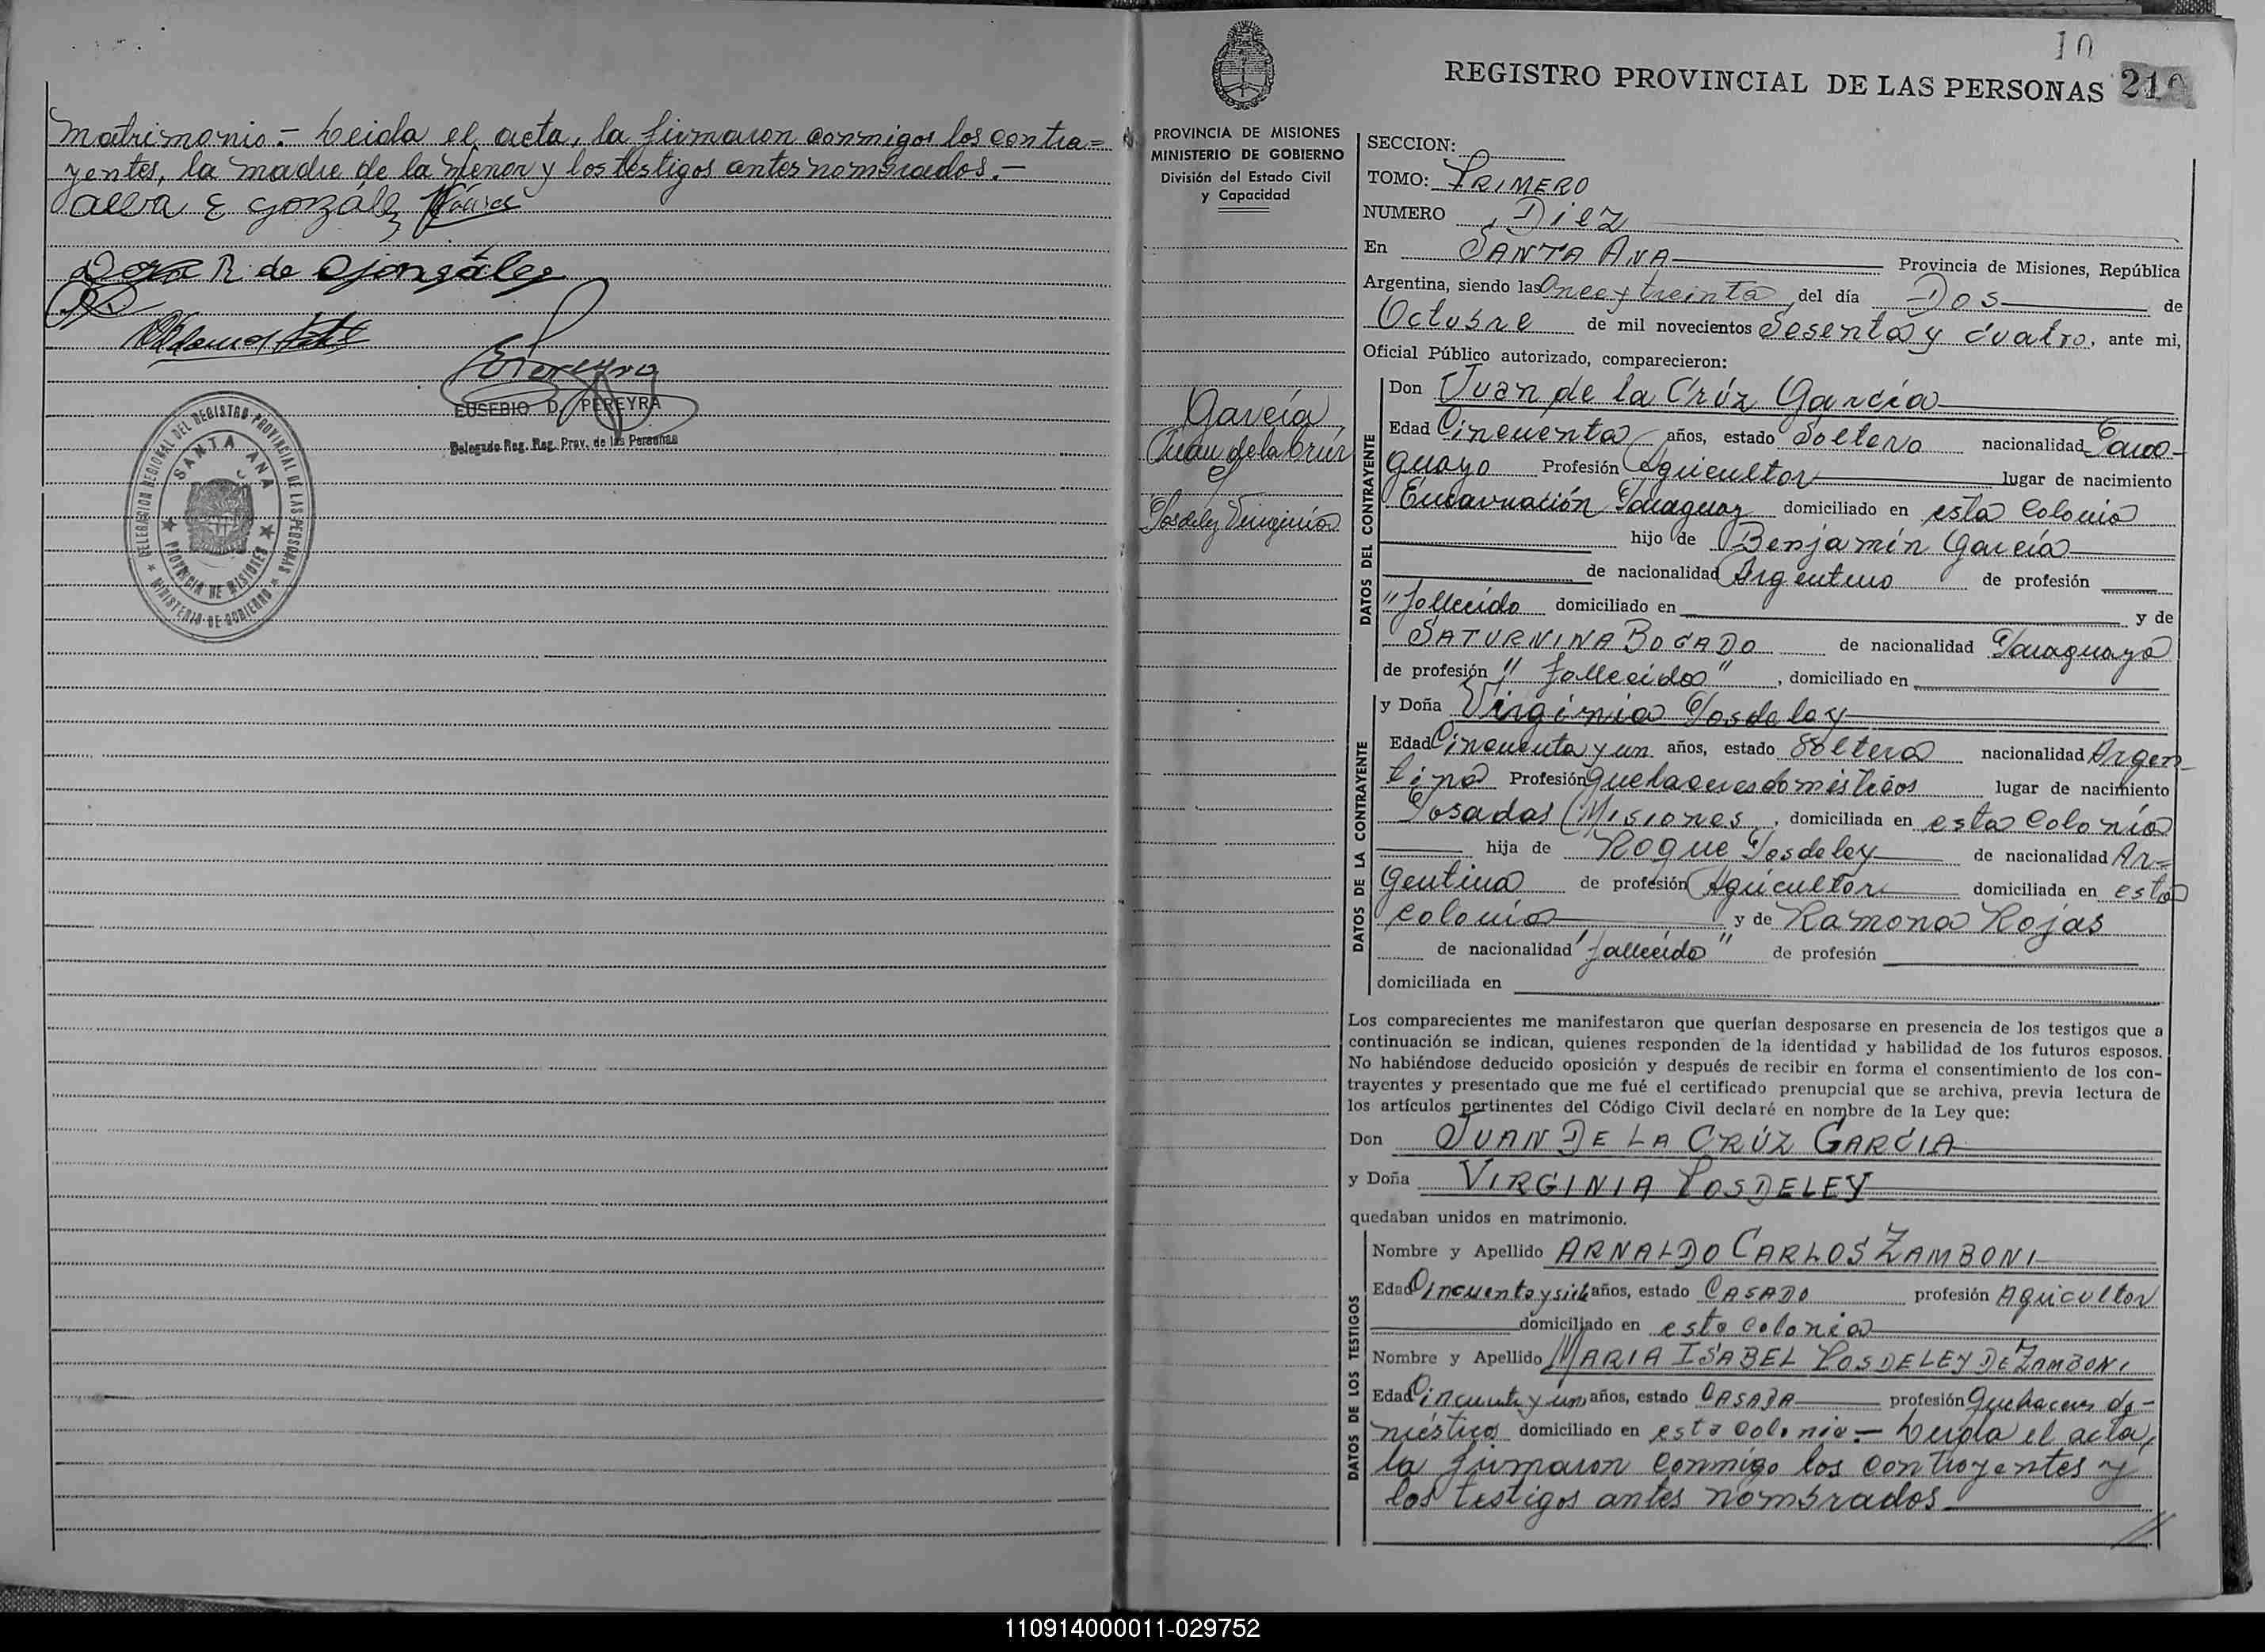 matrimonio.- Leida el acta, la firmaron conmigos los contra=
yentes, la madre de la menor y los testigos antes nombrados.-
Alba E González
Dora R de Gonzáles
EUSEBIO D. PEREYRA
Delegado Reg. Reg. Prov. de las Personas
DELEGACION REGIONAL DEL REGISTRO PROVINCIAL DE LAS PERSONAS
SANTA ANA
PROVINCIA DE MISIONES
MINISTERIO DE GOBIERNO
10
REGISTRO PROVINCIAL DE LAS PERSONAS 210
PROVINCIA DE MISIONES
MINISTERIO DE GOBIERNO
División del Estado Civil
y Capacidad
García
Juan de la Crúz
y
Posdeley Virginia
SECCION:
TOMO: PRIMERO
NUMERO Diez
En SANTA ANA Provincia de Misiones, República
Argentina, siendo las Once y treinta del día Dos de
Octubre de mil novecientos Sesenta y cuatro, ante mi,
Oficial Público autorizado, comparecieron:
DATOS DEL CONTRAYENTE
Don Juan de la Crúz García
Edad Cincuenta años, estado Soltero nacionalidad Para-
guayo Profesión Agricultor lugar de nacimiento
Encarnación Paraguay domiciliado en esta Colonia
hijo de Benjamín García
de nacionalidad Argentino de profesión
"fallecido domiciliado en y de
SATURNINA BOGADO de nacionalidad Paraguaya
de profesión "fallecida", domiciliado en
DATOS DE LA CONTRAYENTE
y Doña Virginia Posdeley
Edad Cincuenta y un años, estado Soltera nacionalidad Argen-
tina Profesión quehaceres domésticos lugar de nacimiento
Posadas (Misiones, domiciliada en esta Colonia
hija de Roque Posdeley de nacionalidad Ar=
gentina de profesión Agricultor domiciliada en esta
colonia y de Ramona Rojas
de nacionalidad "fallecida" de profesión
domiciliada en
Los comparecientes me manifestaron que querían desposarse en presencia de los testigos que a
continuación se indican, quienes responden de la identidad y habilidad de los futuros esposos.
No habiéndose deducido oposición y después de recibir en forma el consentimiento de los con-
trayentes y presentado que me fué el certificado prenupcial que se archiva, previa lectura de
los artículos pertinentes del Código Civil declaré en nombre de la Ley que:
Don JUAN DE LA CRÚZ GARCÍA
y Doña VIRGINIA POSDELEY
quedaban unidos en matrimonio.
DATOS DE LOS TESTIGOS
Nombre y Apellido ARNALDO CARLOS ZAMBONI
Edad Cincuenta y siete años, estado CASADO profesión Agricultor
domiciliado en esta colonia
Nombre y Apellido MARIA ISABEL POSDELEY DE ZAMBONI
Edad Cincuenta y un años, estado CASADA profesión Quehacer do-
méstico domiciliado en esta colonia.- Leida el acta,
la firmaron conmigo los contrayentes y
los testigos antes nombrados
//
110914000011-029752